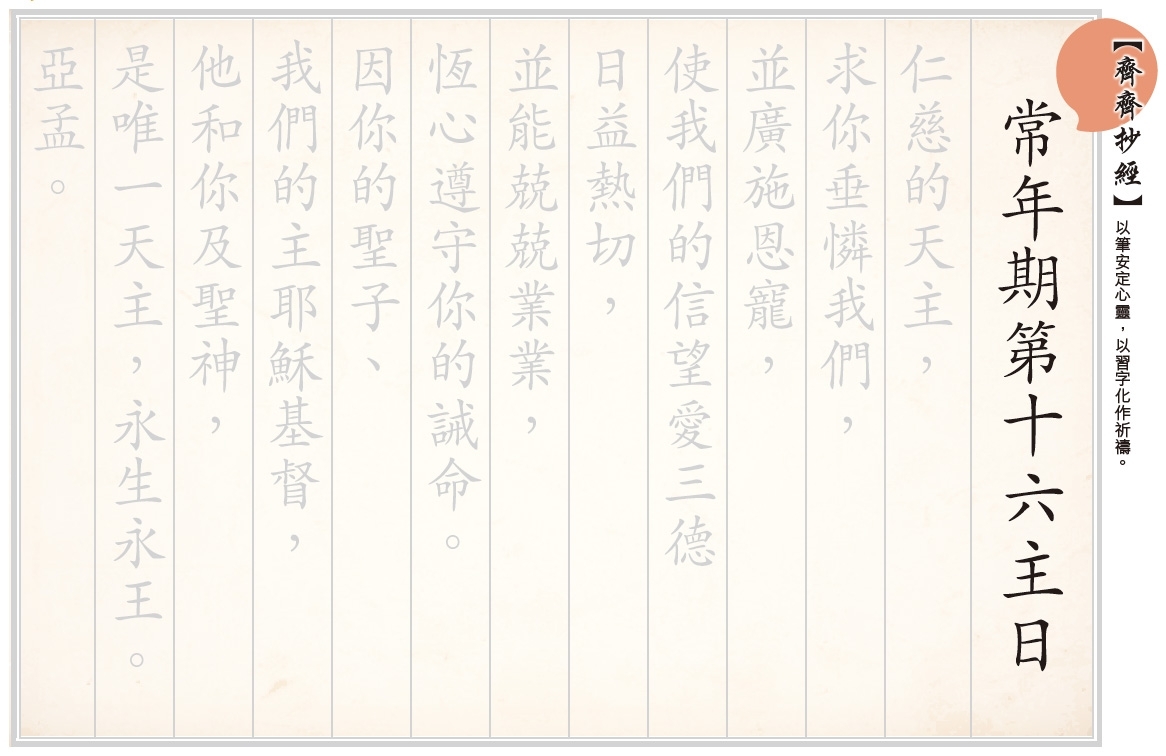 【齊齊抄經】以筆安定心靈，以習字化作祈禱。
常年期第十六主日
仁慈的天主，
求你垂憐我們，
並廣施恩寵，
使我們的信望愛三德
日益熱切，
並能兢兢業業，
恆心遵守你的誡命。
因你的聖子、
我們的主耶穌基督，
他和你及聖神，
是唯一天主，永生永王。
亞孟。